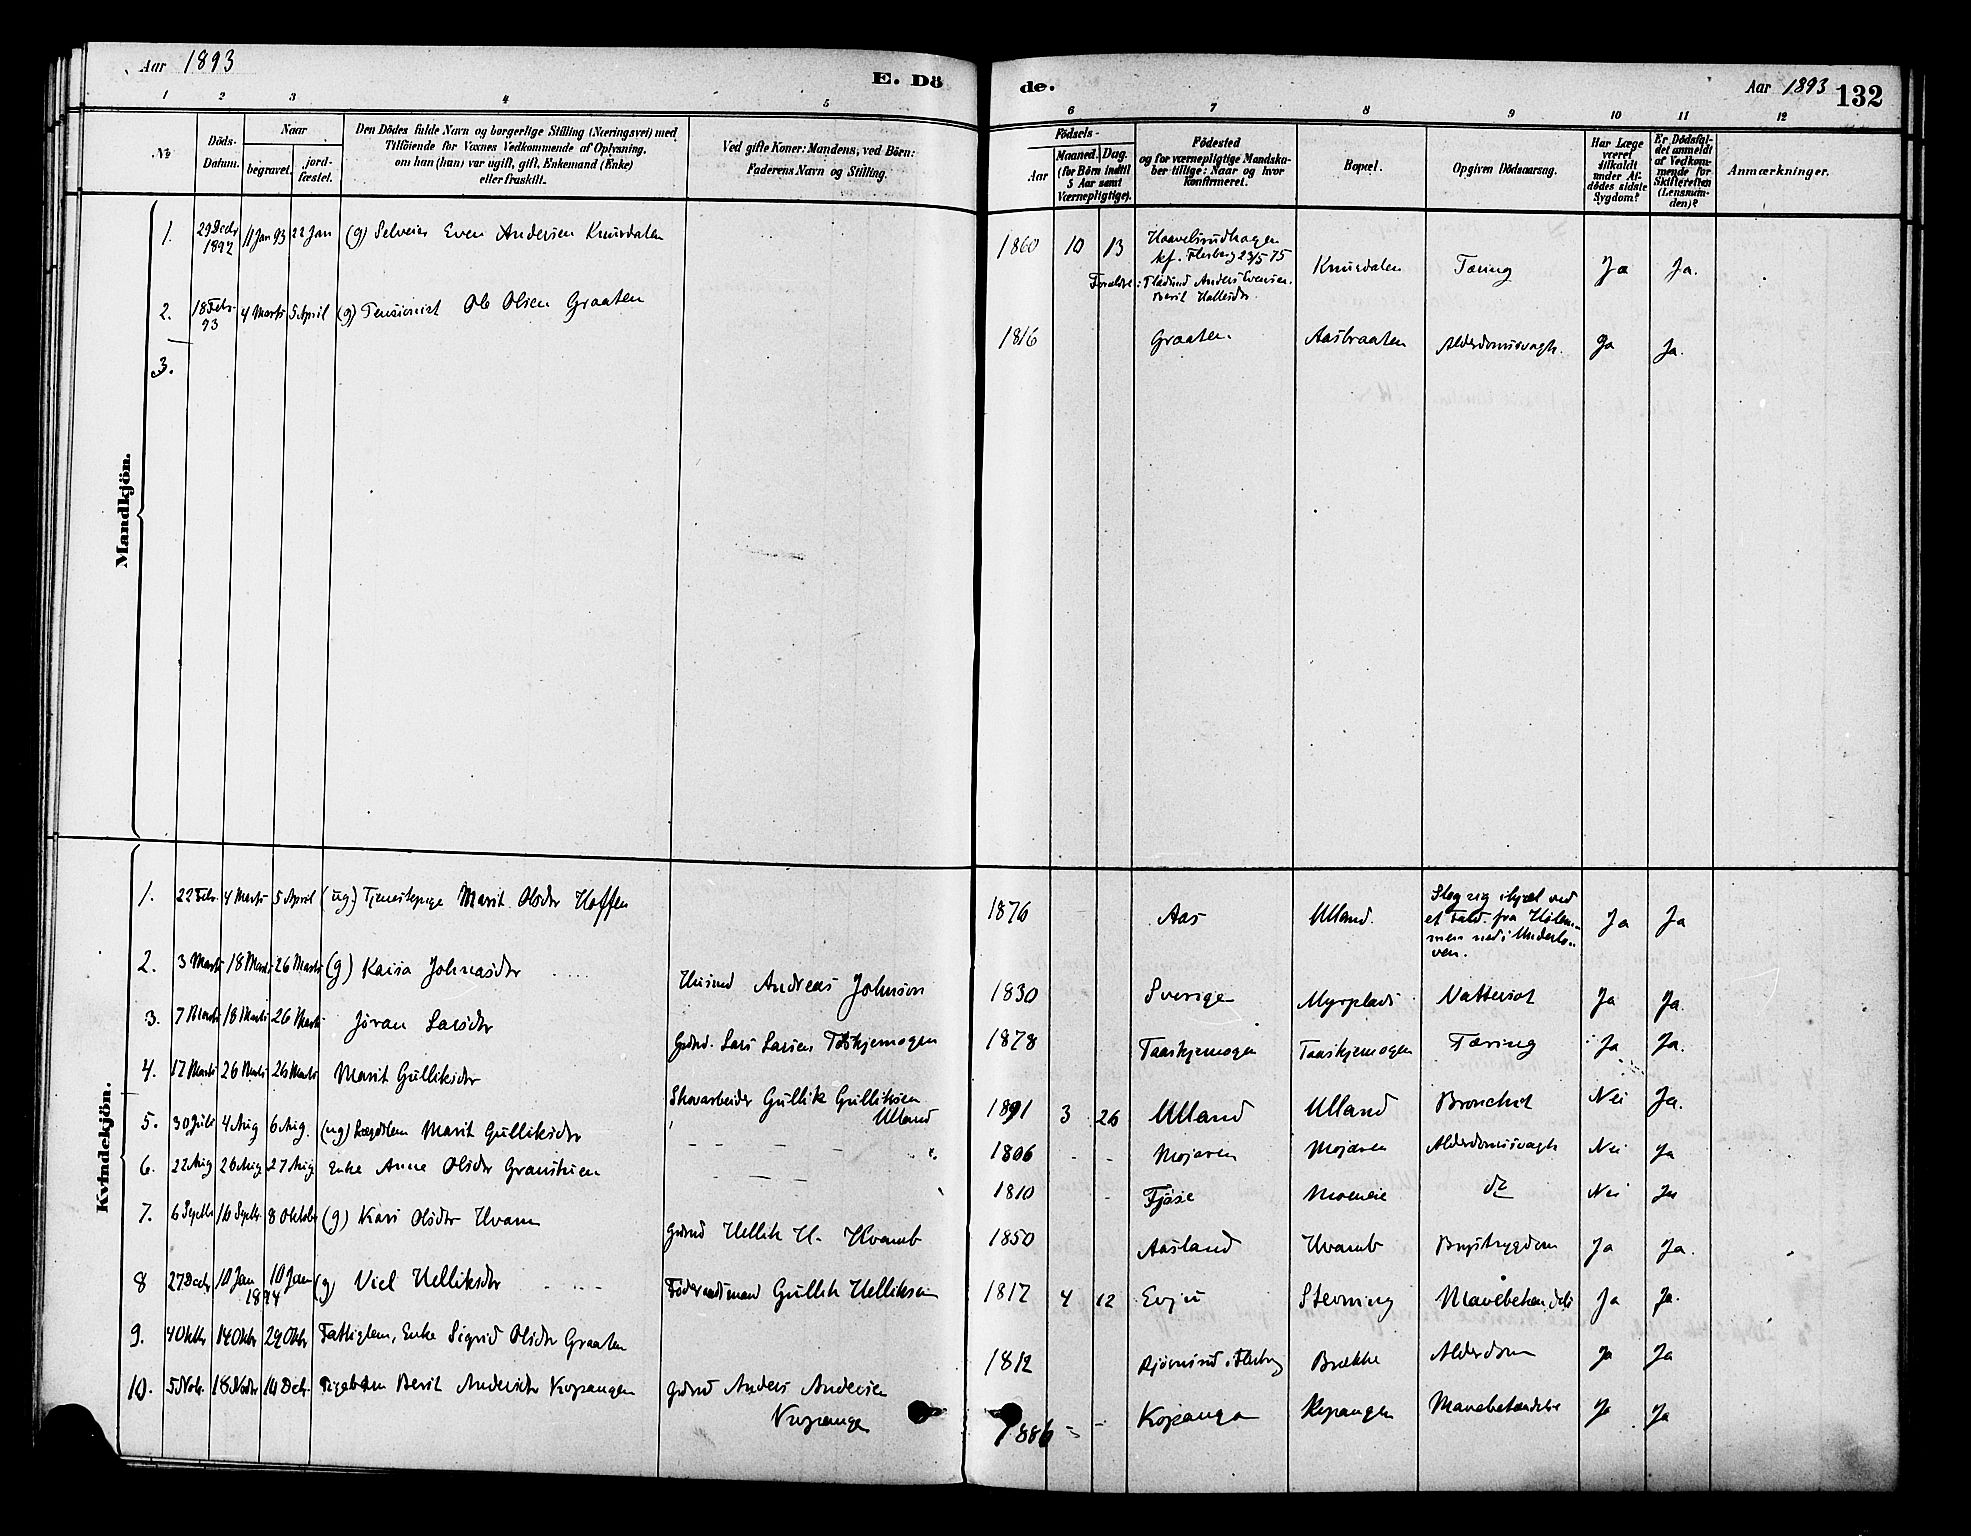 Aar 1893
E. Dö
de.
Aar 1893 132
1 2 3 4 5 6 7 8 9 10 11 12
№
Döds-
Datum.
Naar
begravet.
jord-
fæstet.
Den Dödes fulde Navn og borgerlige Stilling (Næringsvei) med
Tilföiende for Voxnes Vedkommende af Oplysning,
om han (hun) var ugift, gift, Enkemand (Enke)
eller fraskilt.
Ved gifte Koner: Mandens, ved Börn:
Faderens Navn og Stilling.
Födsels-
Aar
Maaned.
Dag.
(for Börn indtil
5 Aar samt
Værnepligtige).
Födested
og for værnepligtige Mandska-
ber tillige: Naar og hvor
Konfirmeret.
Bopæl.
Opgiven Dödsaarsag.
Har Læge
været
tilkaldt
under Af-
dödes sidste
Sygdom?
Er Dödsfal-
det anmeldt
af Vedkom-
mende for
Skifteretten
(Lensman-
den)?
Anmærkninger.
Mandkjön.
1. 29 Decbr 1892 11 Jan 93 22 Jan (g) Selveier Even Andersen Knursdalen 1860 10 13 Haavelsrudhagen
kf. Flesberg 23/5 75 Knursdalen Tæring Ja Ja.
Forældre: Anders Evensen.
Berit
2. 18 Febr. 93 4 Marts 5 April (g) Pensionist Ole Olsen Graaten 1816 Graaten Aasbraaten Alderdomssvagh. Ja Ja.
3.
Kvindekjön.
1. 22 Febr. 4 Marts 5 April (ug.) Tjenestepige Marit Olsdtr Hoffen 1876 Aas Ulland. Slog sig ihjel ved
et Fald fra
men ned i
ven. Ja Ja
2. 3 Marts 18 Marts 26 Marts (g) Kaisa Johnasdtr Husmd Andreas Johnson 1830 Sverige Myrplads Nattersot Ja Ja.
3. 7 Marts 18 Marts 26 Marts Jøran Larsdtr Gaardmd. Lars Larsen Taaskjemogen 1878 Taaskjemogen Taaskjemogen Tæring Ja Ja.
4. 17 Marts 26 Marts 26 Marts Marit Gulliksdtr Skovarbeider Gullik Gulliksen
Ulland 1891 3 26 Ulland Ulland Bronchit Nei Ja.
5. 30 Juli 4 Aug 6 Aug. (ug) Lægdslem Marit Gulliksdtr — — — — " 1806 - - Mojaren Mojaren Alderdomssvagh Nei Ja
6. 22 Aug 26 Aug 27 Aug Enke Anne Olsdtr — — — 1810 - Fjøse Moeneie do Nei Ja
7. 6 Septbr 16 Septbr 8 Oktober (g) Kari Olsdtr Hvam Gaardmd Hellik H. Hvamb 1850 Aasland Hvamb Brystsygdom Ja Ja.
8 27 Decbr 10 Jan 1894 10 Jan (g) Viel Helliksdtr Föderaadsmand Gullik Helliksen 1817 4 12 Evju Stevning Mavebetændelse Ja Ja.
9. 4 Oktbr 14 Oktbr 29 Oktbr Fattiglem, Enke Sigrid Olsdtr Graaten 1812 i Flesberg Brække Alderdom Ja Ja
10. 5 Nov. 18 Novbr 10 Decbr. Pigebarn Berit Andersdtr Kopangen Gaardmd Anders Andersen
Kopangen 1886 - - Kopangen Kopangen Mavebetændelse Ja Ja